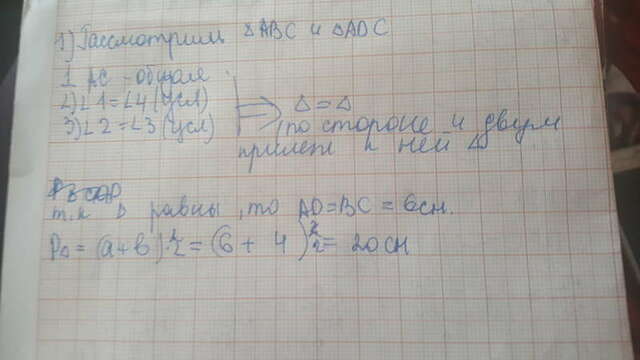 1) Рассмотрим △ABC и △ADC
1 AC - общая
2) ∠1=∠4 (усл)
3) ∠2=∠3 (усл)
△=△
(по стороне и двум
прилеж к ней ∠
т.к △ равны, то AD=BC=6см.
P△ = (a+b)·2 = (6+4)·2 = 20см